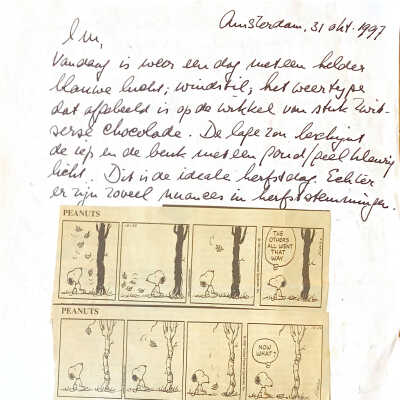 Amsterdam, 31 okt. 1997
Im,
Vandaag is weer een dag met een helder
blauwe lucht, windstil; het weertype
dat afgebeeld is op de wikkel van stuk Zwit-
serse chocolade. De lage zon beschijnt
de iep en de beuk met een goud/geel kleurig
licht. Dit is de ideale herfstdag. Echter
er zijn zoveel nuances in herfststemmingen.
PEANUTS
THE OTHERS ALL WENT THAT WAY
PEANUTS
NOW WHAT?